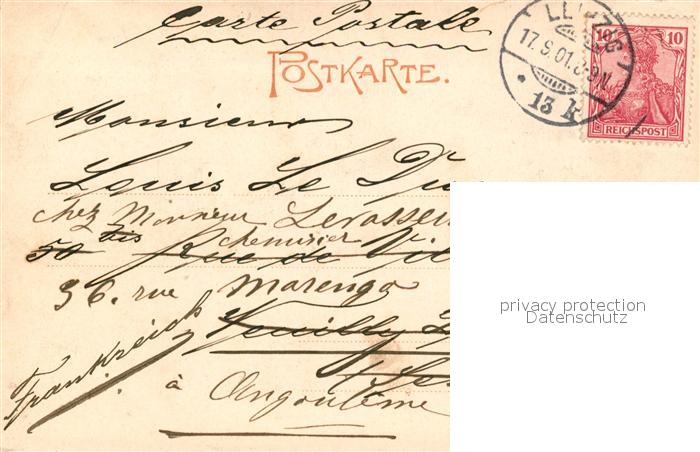 Carte Postale
POSTKARTE.
LEIPZIG
17.9.01.
13 k
10 10
REICHSPOST
Monsieur
Louis Le Du
chez Monsieur Levasseu
50 bis chemisier
Rue de Vil
36. rue Marengo
Neuilly
Frankreich
à Angoulême
privacy protection
Datenschutz